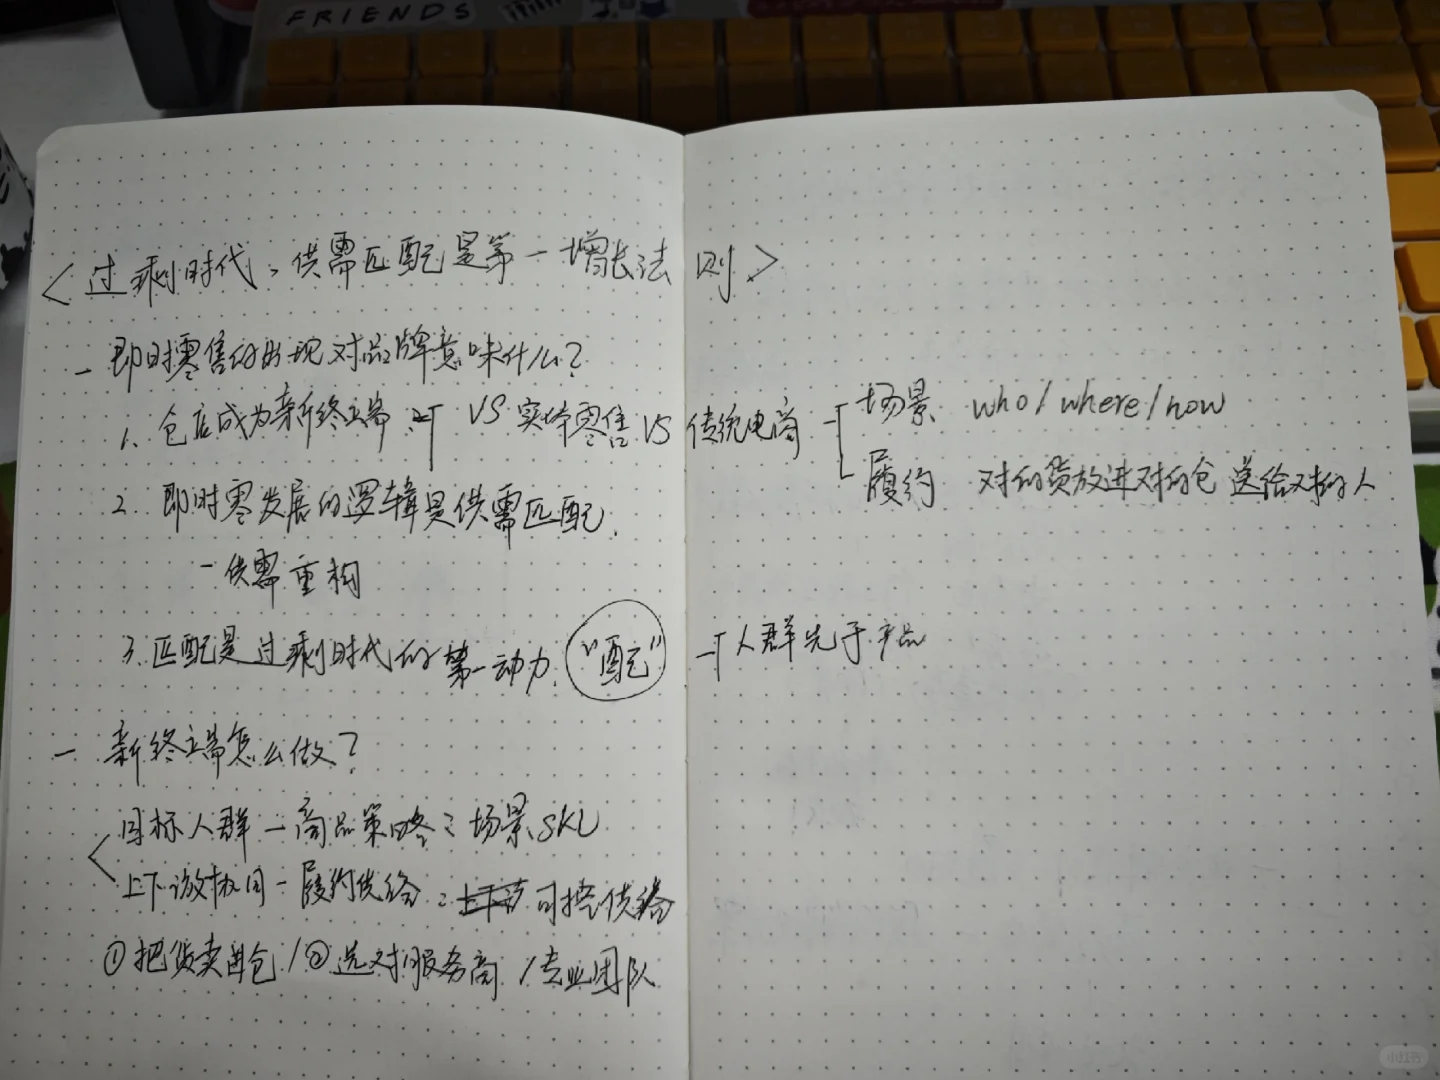 FRIENDS
<过剩时代，供需匹配是第一增长法则>
一 即时零售的出现对品牌意味什么？
1. 仓店成为新终端 VS 实体零售 VS 传统电商
场景 who/where/how
履约 对的货放进对的仓 送给对的人
2. 即时零发展的逻辑是供需匹配.
一供需重构
3. 匹配是过剩时代的第一动力 "配" 人群先于产品
一 新终端怎么做？
目标人群一商品策略：场景SKU
上下游协同一履约供给：可控供给
①把货卖进仓/②选对服务商/专业团队
小红书